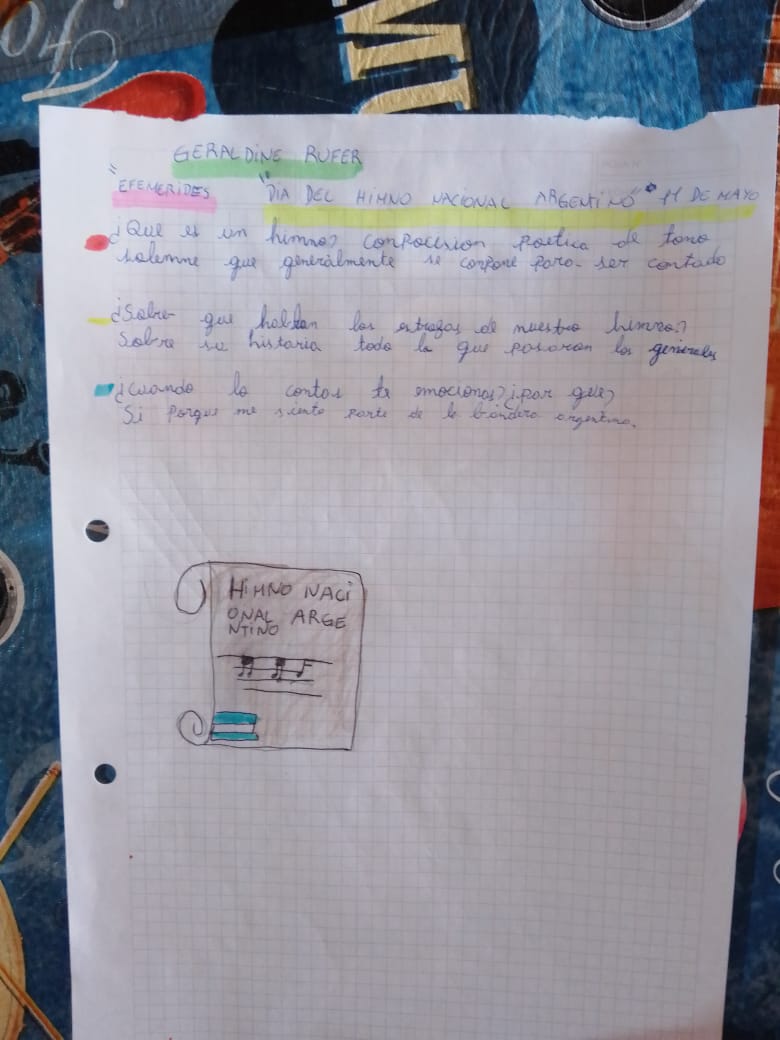 Fo
MU
GERALDINE RUFER
"EFEMERIDES "DIA DEL HIMNO NACIONAL ARGENTINO" 11 DE MAYO
¿Que es un himno? conpocision poetica de tono
solemne que generalmente se conpone para ser cantado
¿Sobre que hablan las estrofas de nuestro himno?
Sobre su historia todo lo que pasaron los generales
¿cuando lo cantas te emocionas? ¿por que?
Si porque me siento parte de la bandera argentina.
HIMNO NACI
ONAL ARGE
NTINO